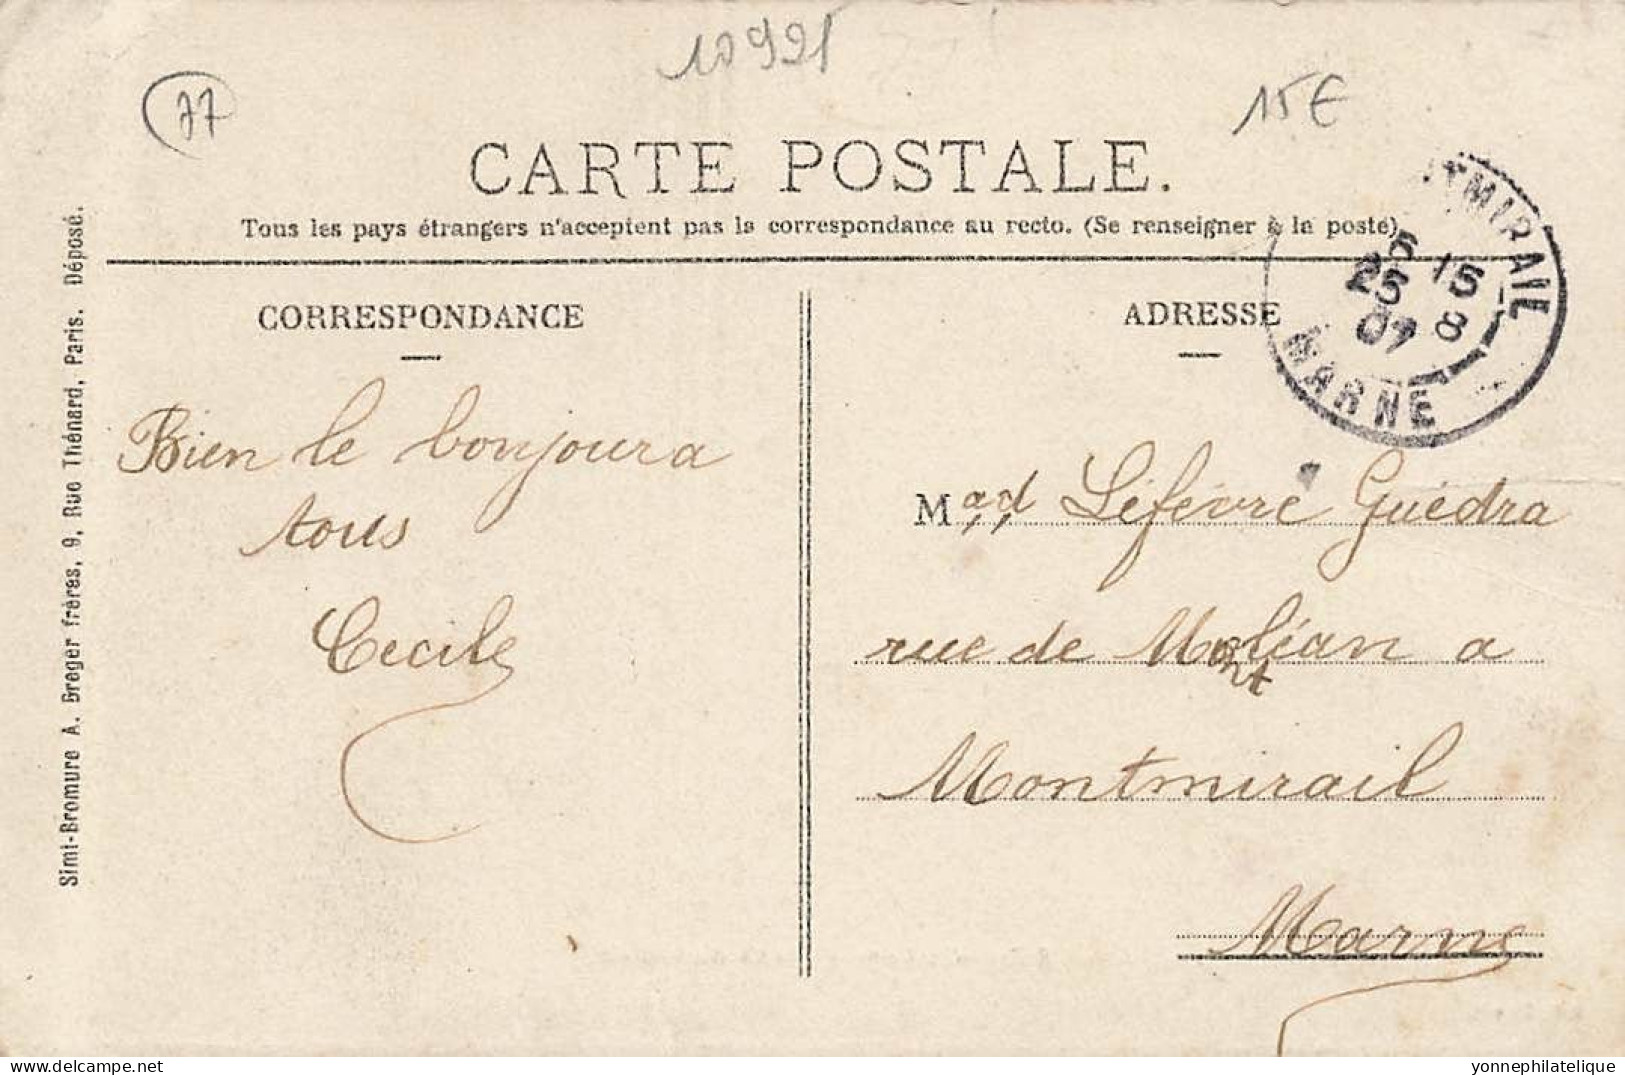 10991
77
15€
CARTE POSTALE.
Tous les pays étrangers n'acceptent pas la correspondance au recto. (Se renseigner à la poste)
CORRESPONDANCE
ADRESSE
TMIRAIL
6 15
25 8
07
MARNE
Bien le bonjour a
tous
Cecile
Mad Lefévre Guédra
rue de Montléan a
Montmirail
Marne
Simi-Bromure A. Breger frères, 9, Rue Thénard, Paris. Déposé.
yonnephilatelie.com